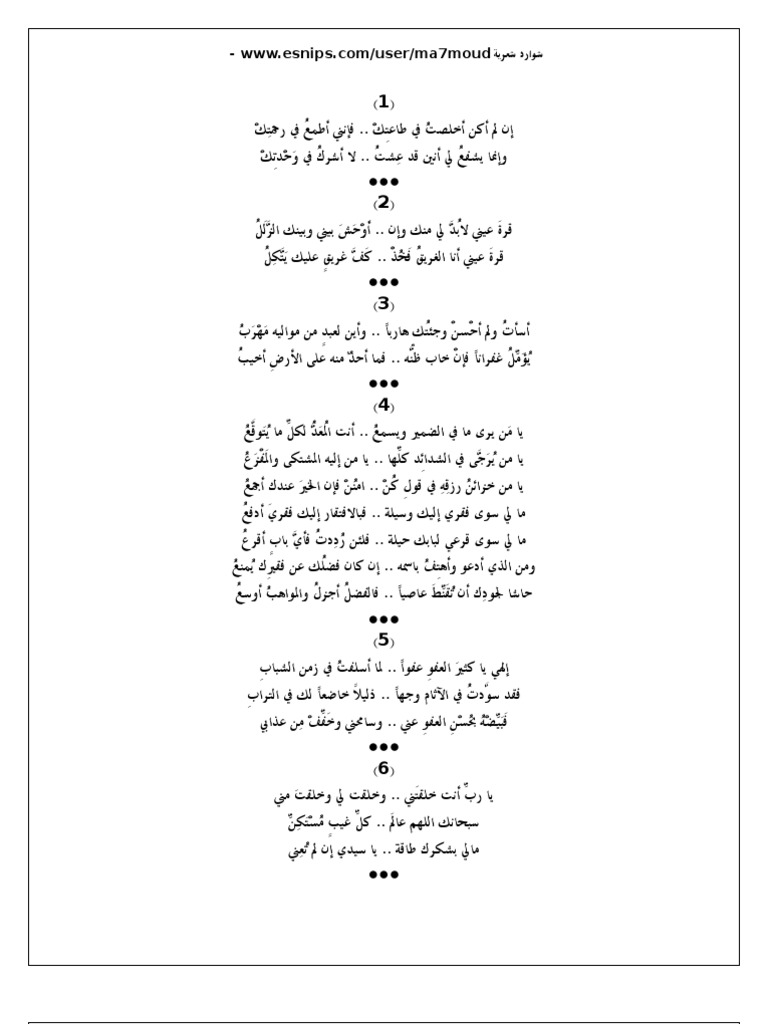 شوارد شعرية www.esnips.com/user/ma7moud -
(1)
إن لم أكن أخلصتُ في طاعتِكْ .. فإنني أطمعُ في رحمتِكْ
وإنما يشفعُ لي أنين قد عِشتُ .. لا أشركُ في وَحْدتِكْ
●●●
(2)
قرةَ عيني لابُدَّ لي منك وإن .. أوْحَشَ بيني وبينك الزَّلَلُ
قرةَ عيني أنا الغريقُ فَخُذْ .. كَفَّ غريقٍ عليك يَتَّكِلُ
●●●
(3)
أسأتُ ولم أحْسنْ وجئتُك هارباً .. وأين لعبدٍ من مواليه مَهْرَبُ
يُؤَمِّلُ غفراناً فإنْ خاب ظنُّه .. فما أحدٌ منه على الأرضِ أخيبُ
●●●
(4)
يا مَن يرى ما في الضمير ويسمعُ .. أنت الْمُعَدُّ لكلِّ ما يُتَوقَّعُ
يا من يُرَجَّى في الشدائِد كلِّها .. يا من إليه المشتكى والمَفْزَعُ
يا من خزائنُ رزقِهِ في قولِ كُنْ .. امنُنْ فإن الخيرَ عندك أجمعُ
ما لي سوى فقري إليك وسيلة .. فبالافتقار إليك فقريَ أدفعُ
ما لي سوى قرعي لبابك حيلة .. فلئن رُدِدتُ فأيَّ بابٍ أقرعُ
ومن الذي أدعو وأهتِفُ باسمه .. إن كان فضلُك عن فقيرِك يُمنعُ
حاشا لجودِك أن تُقَنِّطَ عاصياً .. فالفضلُ أجزلُ والمواهبُ أوسعُ
●●●
(5)
إلهي يا كثيرَ العفوِ عفواً .. لما أسلفتُ في زمن الشبابِ
فقد سوَّدتُ في الآثام وجهاً .. ذليلاً خاضعاً لك في الترابِ
فَبَيِّضْهُ بحُسْنِ العفوِ عني .. وسامحني وخَفِّفْ مِن عذابي
●●●
(6)
يا ربِّ أنت خلقتَني .. وخلقت لي وخلقتَ مني
سبحانك اللهم عالمَ .. كلِّ غيبٍ مُسْتكِنِّ
مالي بشكرك طاقة .. يا سيدي إن لم تُعِني
●●●